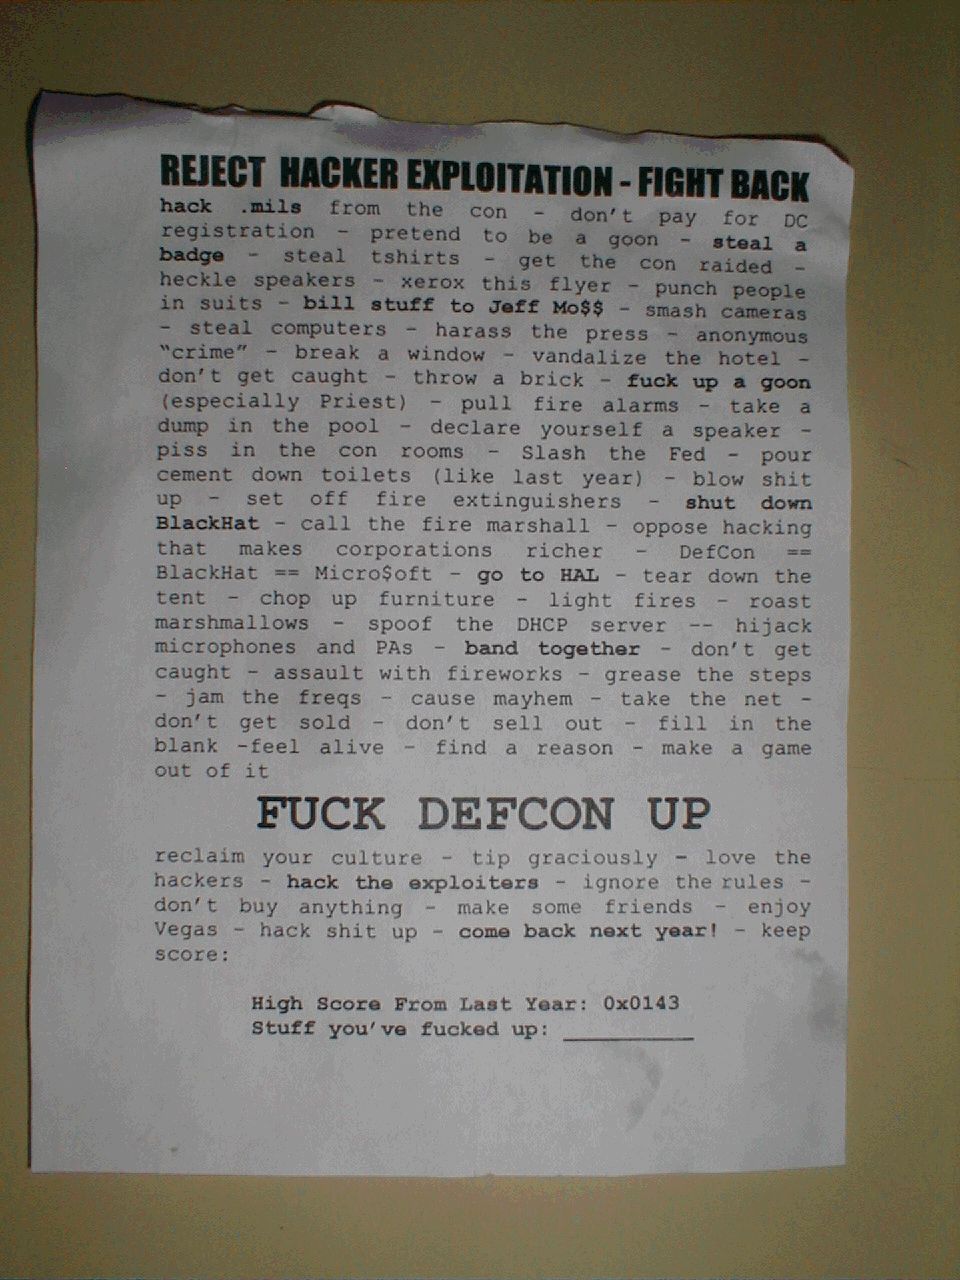 REJECT HACKER EXPLOITATION - FIGHT BACK
hack .mils from the con - don't pay for DC
registration - pretend to be a goon - steal a
badge - steal tshirts - get the con raided -
heckle speakers - xerox this flyer - punch people
in suits - bill stuff to Jeff Mo$$ - smash cameras
- steal computers - harass the press - anonymous
"crime" - break a window - vandalize the hotel -
don't get caught - throw a brick - fuck up a goon
(especially Priest) - pull fire alarms - take a
dump in the pool - declare yourself a speaker -
piss in the con rooms - Slash the Fed - pour
cement down toilets (like last year) - blow shit
up - set off fire extinguishers - shut down
BlackHat - call the fire marshall - oppose hacking
that makes corporations richer - DefCon ==
BlackHat == Micro$oft - go to HAL - tear down the
tent - chop up furniture - light fires - roast
marshmallows - spoof the DHCP server -- hijack
microphones and PAs - band together - don't get
caught - assault with fireworks - grease the steps
- jam the freqs - cause mayhem - take the net -
don't get sold - don't sell out - fill in the
blank -feel alive - find a reason - make a game
out of it
FUCK DEFCON UP
reclaim your culture - tip graciously - love the
hackers - hack the exploiters - ignore the rules -
don't buy anything - make some friends - enjoy
Vegas - hack shit up - come back next year! - keep
score:
High Score From Last Year: 0x0143
Stuff you've fucked up: __________